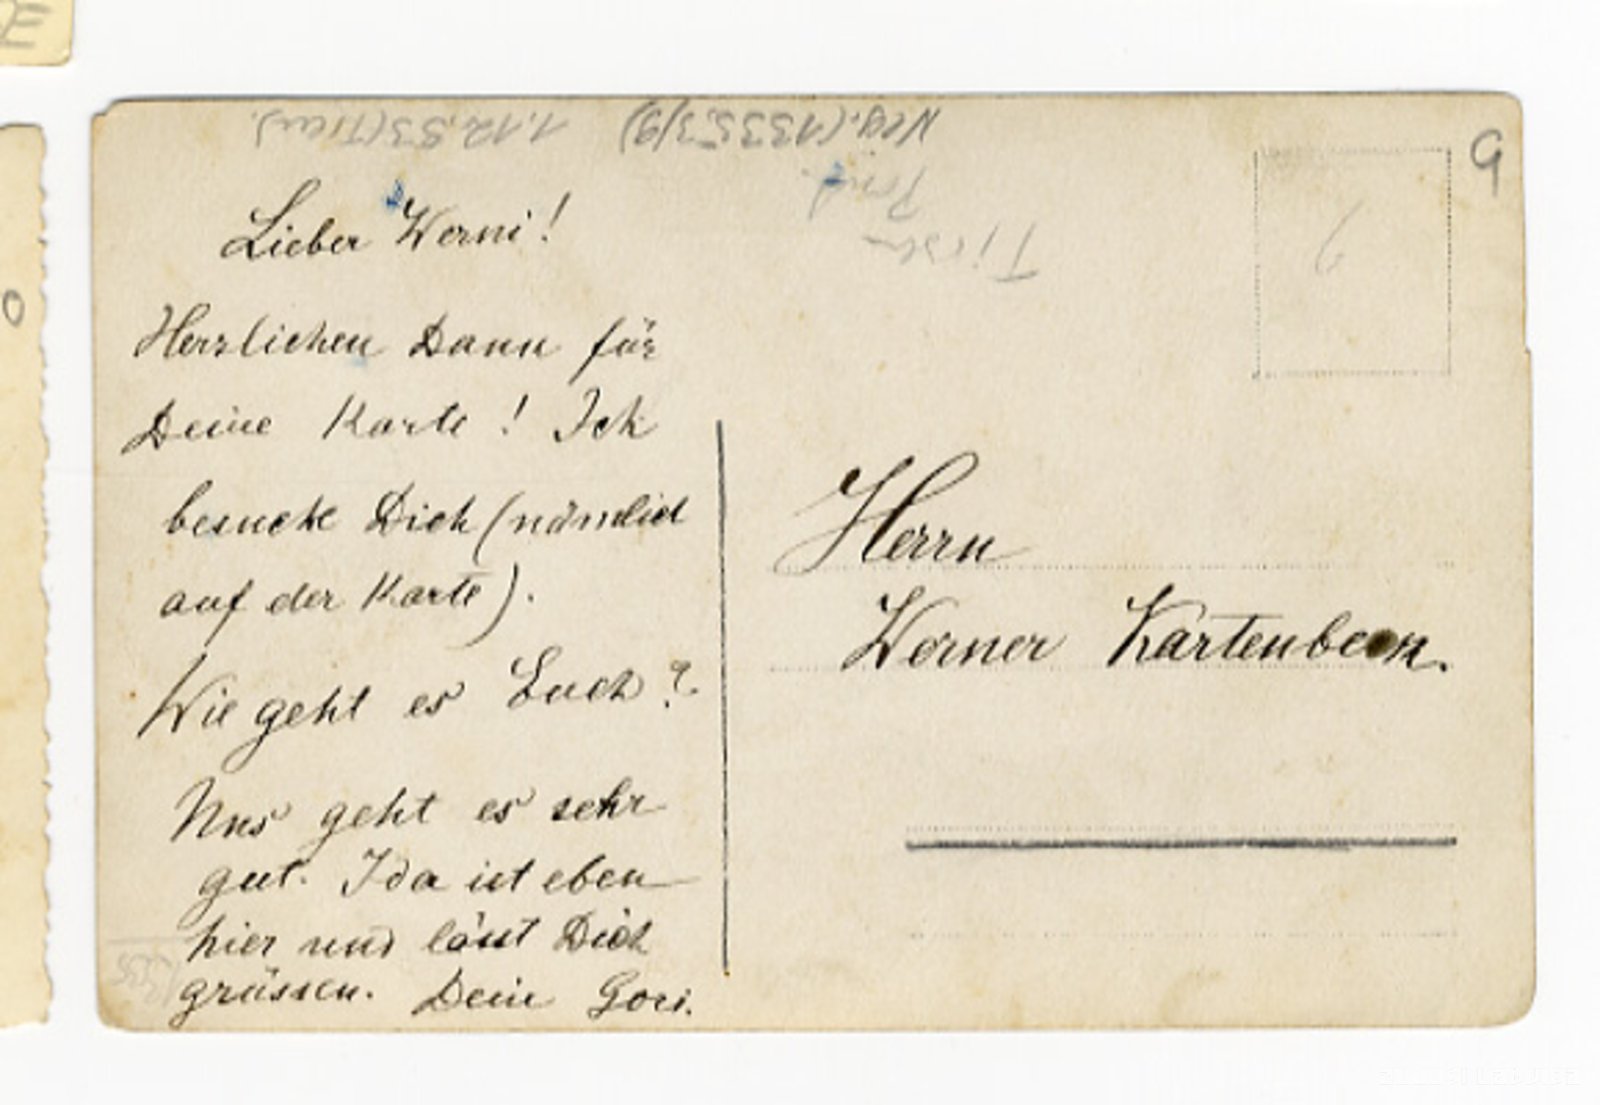 Lieber Werni!
Herzlichen Dank für
Deine Karte! Ich
besuche Dich (nämlich
auf der Karte).
Wie geht es Euch?
Uns geht es sehr
gut. Ida ist eben
hier und lässt Dich
grüssen. Dein Gori.
Herrn
Werner
9
1.12.53 (Tieu).
Neg. (13353/9)
?
0